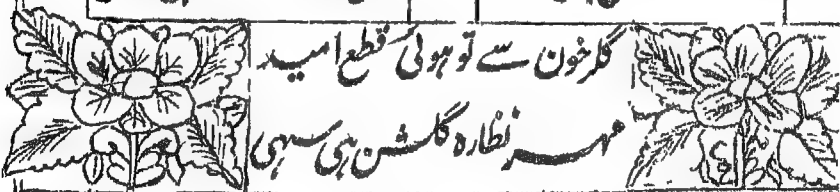 گلرخون سے تو ہوئی قطع امید
مہر نظارہ گلشن ہی سہی